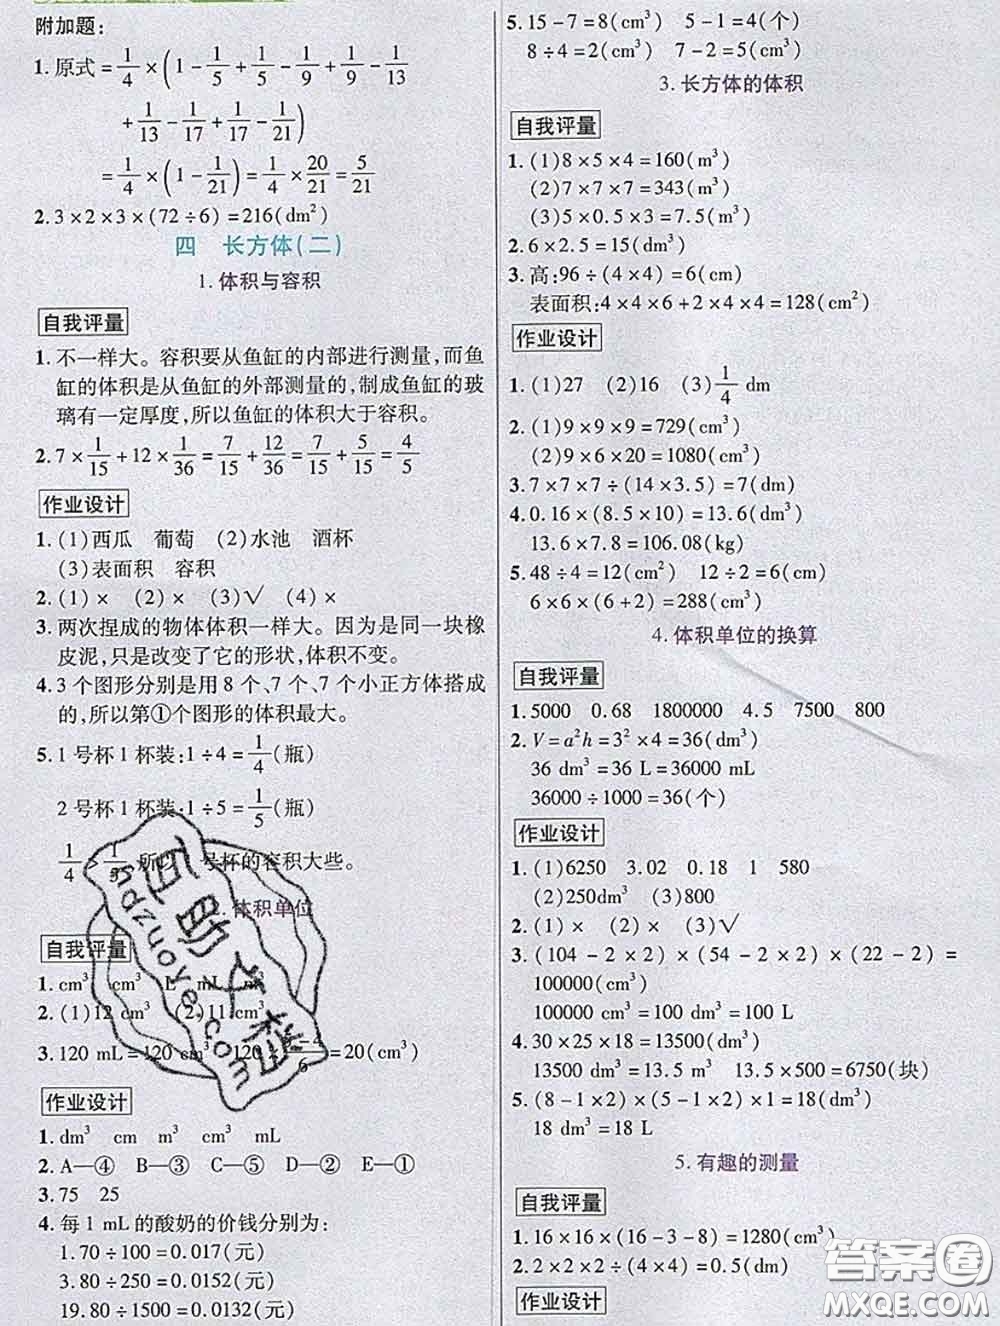 附加题:
1. 原式 = 1/4 × (1 − 1/5 + 1/5 − 1/9 + 1/9 − 1/13
+ 1/13 − 1/17 + 1/17 − 1/21)
= 1/4 × (1 − 1/21) = 1/4 × 20/21 = 5/21
2. 3 × 2 × 3 × (72 ÷ 6) = 216(dm²)
四 长方体(二)
1. 体积与容积
自我评量
1. 不一样大。容积要从鱼缸的内部进行测量,而鱼
缸的体积是从鱼缸的外部测量的,制成鱼缸的玻
璃有一定厚度,所以鱼缸的体积大于容积。
2. 7 × 1/15 + 12 × 1/36 = 7/15 + 12/36 = 7/15 + 5/15 = 4/5
作业设计
1. (1)西瓜 葡萄 (2)水池 酒杯
(3)表面积 容积
2. (1) × (2) × (3)√ (4) ×
3. 两次捏成的物体体积一样大。因为是同一块橡
皮泥,只是改变了它的形状,体积不变。
4. 3 个图形分别是用 8 个、7 个、7 个小正方体搭成
的,所以第①个图形的体积最大。
5. 1 号杯 1 杯装:1 ÷ 4 = 1/4(瓶)
2 号杯 1 杯装:1 ÷ 5 = 1/5(瓶)
1/4 > 1/5 所以 号杯的容积大些。
体积单位
自我评量
1. cm³ cm³ L mL m³
2. (1)12 cm³ (2)11 cm³
3. 120 mL = 120 cm³ 120 = 20(cm³)
作业设计
1. dm³ cm m³ cm³ mL
2. A—④ B—③ C—⑤ D—② E—①
3. 75 25
4. 每 1 mL 的酸奶的价钱分别为:
1.70 ÷ 100 = 0.017(元)
3.80 ÷ 250 = 0.0152(元)
19.80 ÷ 1500 = 0.0132(元)
5. 15 − 7 = 8(cm³) 5 − 1 = 4(个)
8 ÷ 4 = 2(cm³) 7 − 2 = 5(cm³)
3. 长方体的体积
自我评量
1. (1)8 × 5 × 4 = 160(m³)
(2)7 × 7 × 7 = 343(m³)
(3)5 × 0.5 × 3 = 7.5(m³)
2. 6 × 2.5 = 15(dm³)
3. 高:96 ÷ (4 × 4) = 6(cm)
表面积:4 × 4 × 6 + 2 × 4 × 4 = 128(cm²)
作业设计
1. (1)27 (2)16 (3)1/4 dm
2. (1)9 × 9 × 9 = 729(cm³)
(2)9 × 6 × 20 = 1080(cm³)
3. 7 × 7 × 7 ÷ (14 × 3.5) = 7(dm)
4. 0.16 × (8.5 × 10) = 13.6(dm³)
13.6 × 7.8 = 106.08(kg)
5. 48 ÷ 4 = 12(cm²) 12 ÷ 2 = 6(cm)
6 × 6 × (6 + 2) = 288(cm³)
4. 体积单位的换算
自我评量
1. 5000 0.68 1800000 4.5 7500 800
2. V = a²h = 3² × 4 = 36(dm³)
36 dm³ = 36 L = 36000 mL
36000 ÷ 1000 = 36(个)
作业设计
1. (1)6250 3.02 0.18 1 580
(2)250dm³ (3)800
2. (1) × (2) × (3)√
3. (104 − 2 × 2) × (54 − 2 × 2) × (22 − 2) =
100000(cm³)
100000 cm³ = 100 dm³ = 100 L
4. 30 × 25 × 18 = 13500(dm³)
13500 dm³ = 13.5 m³ 13.5 × 500 = 6750(块)
5. (8 − 1 × 2) × (5 − 1 × 2) × 1 = 18(dm³)
18 dm³ = 18 L
5. 有趣的测量
自我评量
1. 16 × 16 × (16 − 3 − 8) = 1280(cm³)
2. 2 × 2 × 2 ÷ (4 × 4) = 0.5(dm)
作业设计
答案圈
MXQE.COM